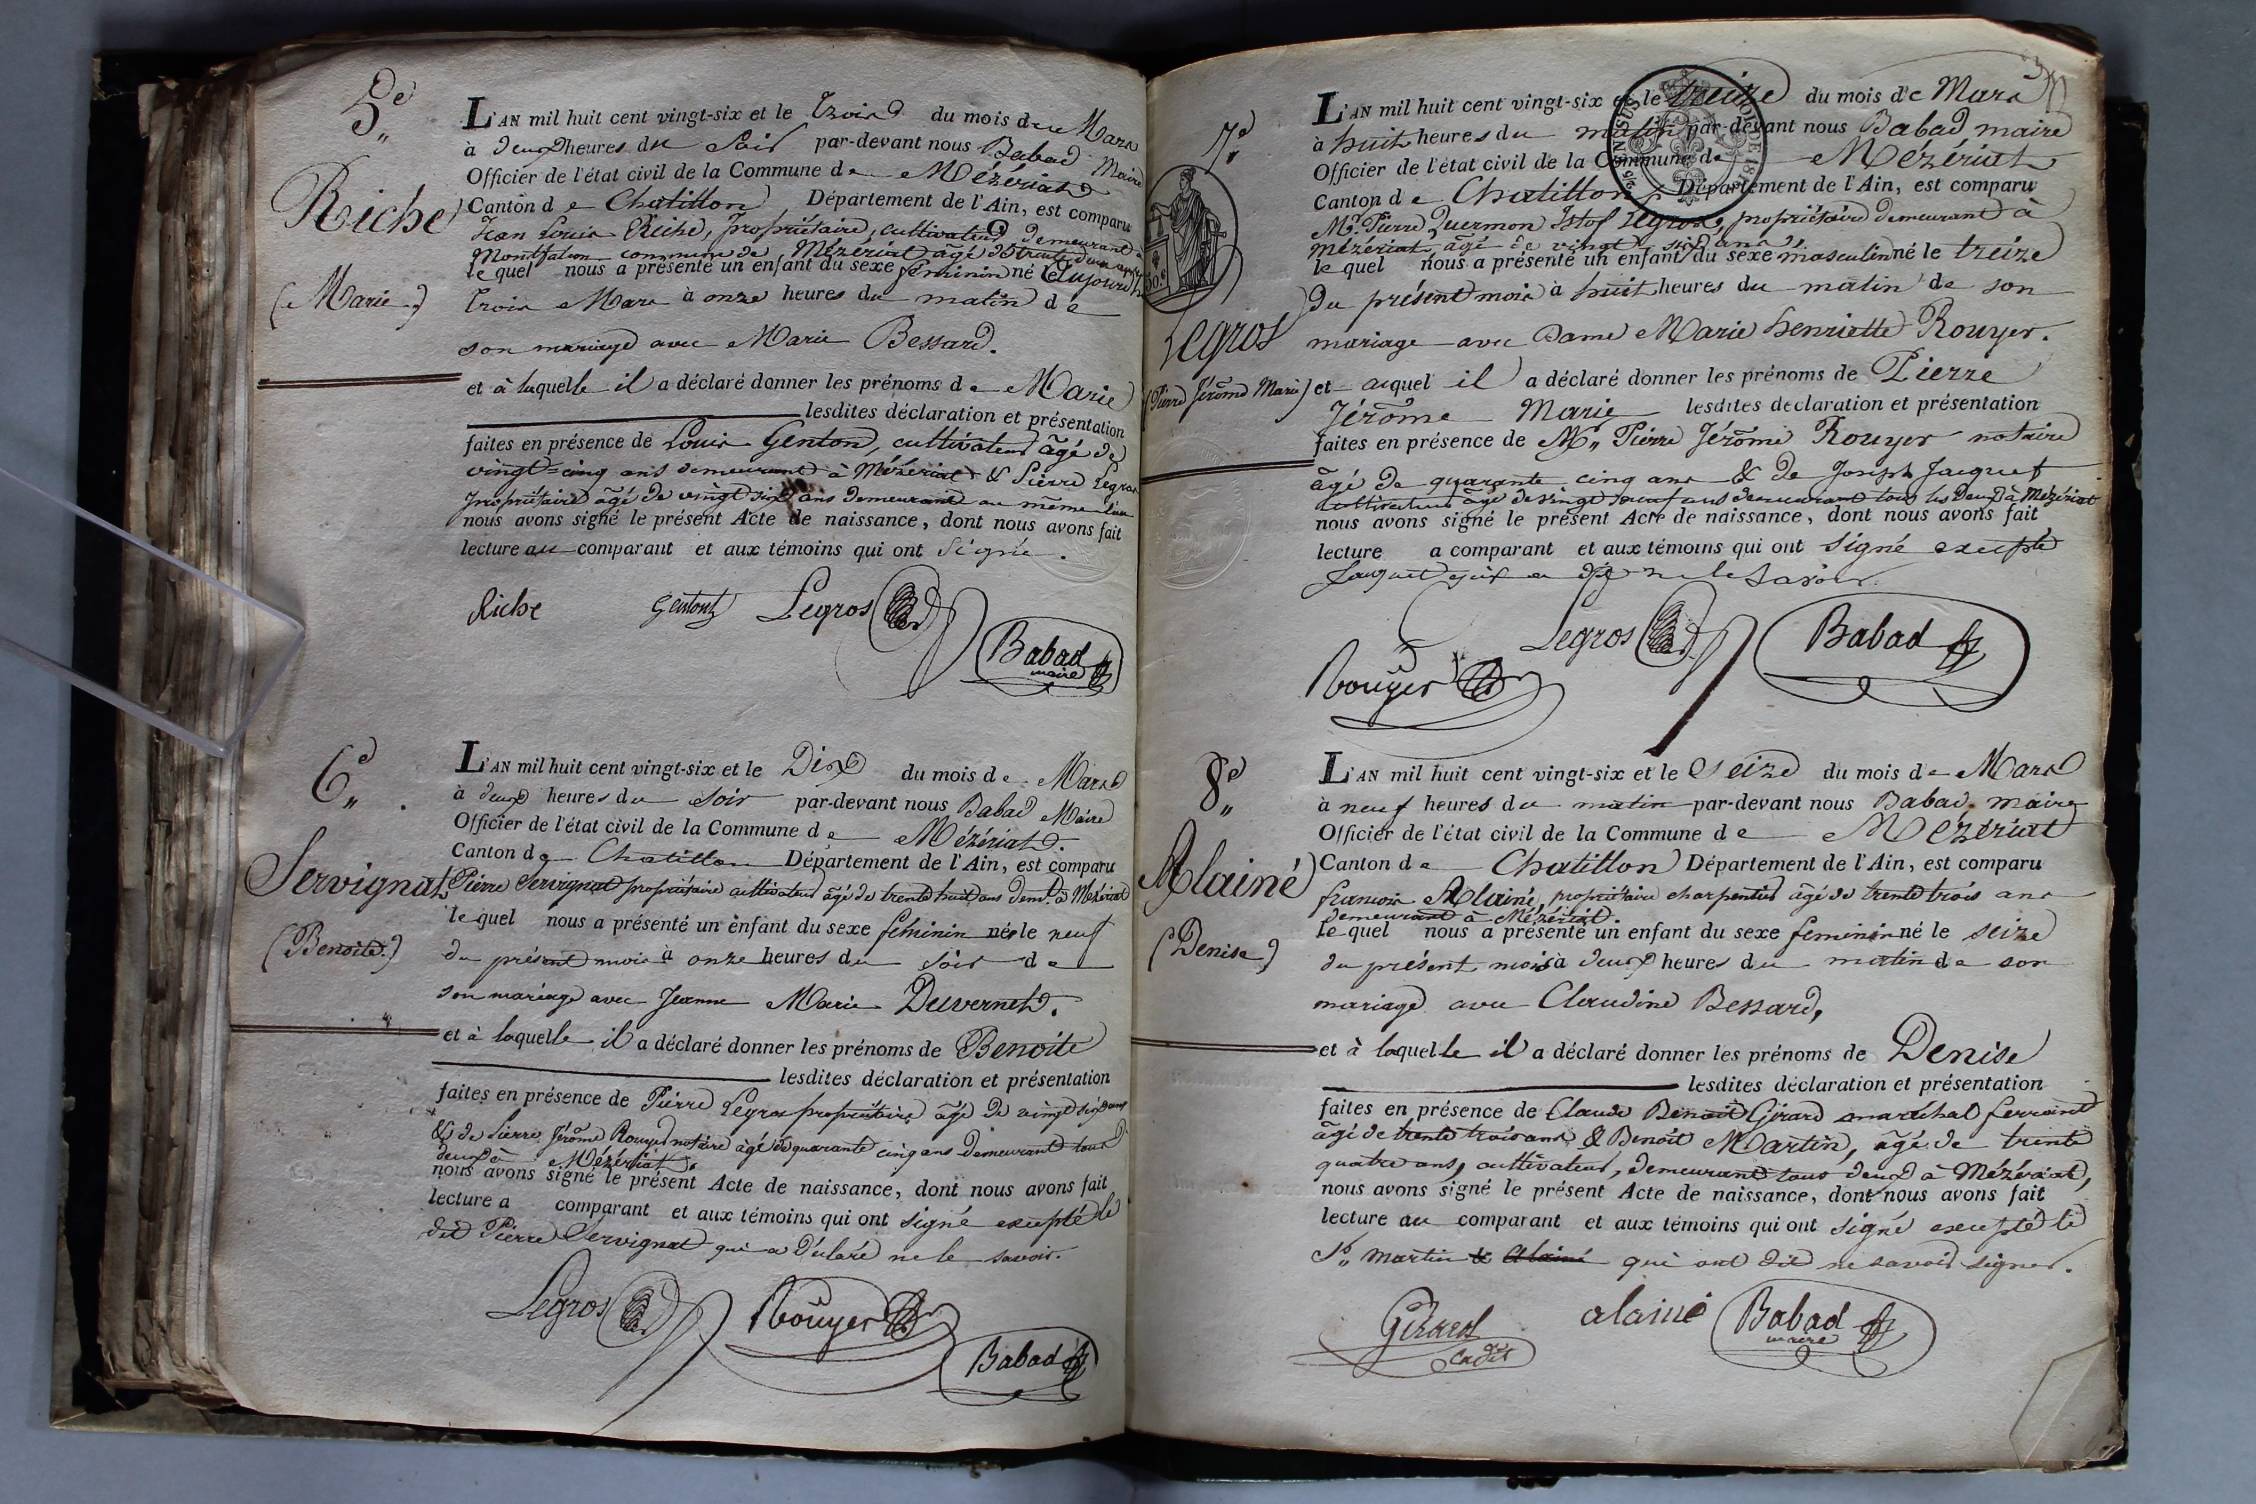 5e
Riche
(Marie)
L'AN mil huit cent vingt-six et le trois du mois de Mars
à deux heures du soir par-devant nous Babad Maire
Officier de l'état civil de la Commune de Mézériat
Canton de Chatillon Département de l'Ain, est comparu
Jean Louis Riche, propriétaire, cultivateur demeurant à
Montfalcon commune de Mézériat âgé de trente deux ans
lequel nous a présenté un enfant du sexe féminin né Aujourd'hui
trois Mars à onze heures du matin de
son mariage avec Marie Bessard.
et à laquelle il a déclaré donner les prénoms de Marie
lesdites déclaration et présentation
faites en présence de Louis Genton, cultivateur âgé de
vingt-cinq ans demeurant à Mézériat & Pierre Legros
propriétaire âgé de vingt six ans demeurant au même lieu
nous avons signé le présent Acte de naissance, dont nous avons fait
lecture au comparant et aux témoins qui ont signé.
Riche Genton Legros
Babad
maire
6e
Servignat
(Benoite)
L'AN mil huit cent vingt-six et le Dix du mois de Mars
à deux heures du soir par-devant nous Babad Maire
Officier de l'état civil de la Commune de Mézériat.
Canton de Chatillon Département de l'Ain, est comparu
Pierre Servignat propriétaire cultivateur âgé de trente huit ans demt. à Mézériat
lequel nous a présenté un enfant du sexe féminin née le neuf
du présent mois à onze heures du soir de
son mariage avec Jeanne Marie Duvernet.
et à laquelle il a déclaré donner les prénoms de Benoite
lesdites déclaration et présentation
faites en présence de Pierre Legros propriétaire âgé de vingt six ans
& de Pierre Jérôme Rouyer notaire âgé de quarante cinq ans demeurant tous
deux à Mézériat.
nous avons signé le présent Acte de naissance, dont nous avons fait
lecture a comparant et aux témoins qui ont signé excepté le
dit Pierre Servignat qui a déclaré ne le savoir.
Legros Rouyer
Babad
7e
Legros
(Pierre Jérôme Marie)
L'AN mil huit cent vingt-six et le treize du mois de Mars
à huit heures du matin par-devant nous Babad maire
Officier de l'état civil de la Commune de Mézériat
Canton de Chatillon Département de l'Ain, est comparu
Mr. Pierre Legros, propriétaire demeurant à
Mézériat âgé de vingt six ans
lequel nous a présenté un enfant du sexe masculin né le treize
du présent mois à huit heures du matin de son
mariage avec Dame Marie henriette Rouyer.
et auquel il a déclaré donner les prénoms de Pierre
Jérôme Marie lesdites declaration et présentation
faites en présence de Mr. Pierre Jérôme Rouyer notaire
âgé de quarante cinq ans & de Joseph Jacquet
cultivateur âgé de vingt neuf ans demeurant tous les deux à Mézériat
nous avons signé le présent Acte de naissance, dont nous avons fait
lecture a comparant et aux témoins qui ont signé excepté
Jacquet qui a dit ne le savoir.
Legros Babad
Rouyer
8e
Alainé
(Denise)
L'AN mil huit cent vingt-six et le seize du mois de Mars
à neuf heures du matin par-devant nous Babad maire
Officier de l'état civil de la Commune de Mézériat
Canton de Chatillon Département de l'Ain, est comparu
francois Alainé, propriétaire charpentier âgé de trente trois ans
demeurant à Mézériat.
lequel nous a présenté un enfant du sexe feminin né le seize
du présent mois à deux heures du matin de son
mariage avec Claudine Bessard,
et à laquelle il a déclaré donner les prénoms de Denise
lesdites déclaration et présentation
faites en présence de Claude Benoit Girard maréchal ferrant
âgé de trente trois ans & Benoit Martin, âgé de trente
quatre ans, cultivateur, demeurant tous deux à Mézériat,
nous avons signé le présent Acte de naissance, dont nous avons fait
lecture au comparant et aux témoins qui ont signé excepté le
Sr. Martin & Alainé qui ont dit ne savoir signer.
Girard
cadet
alainé Babad
maire